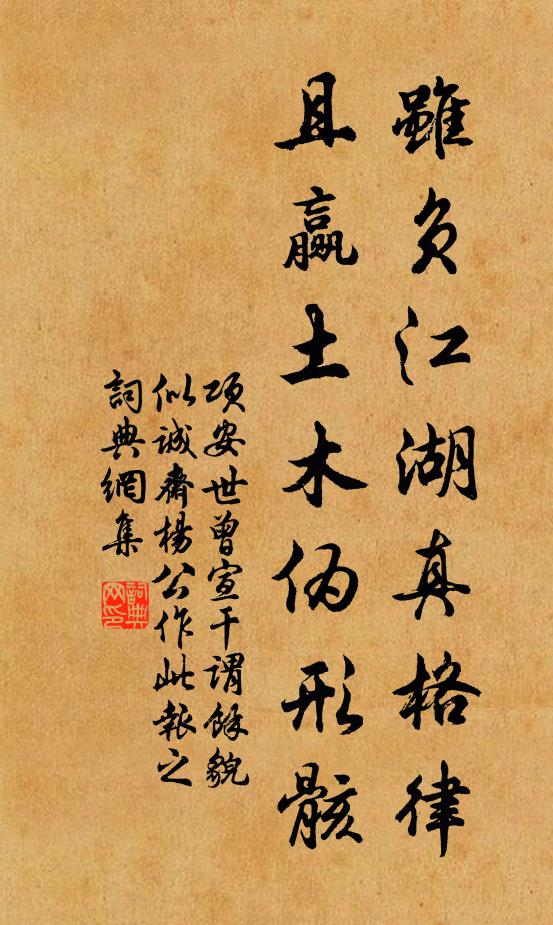 雖負江湖真格律
且贏土木偽形骸
項安世曾宣干謂餘貌
似誠齋楊公作此報之
詞典網集
詞典
网印